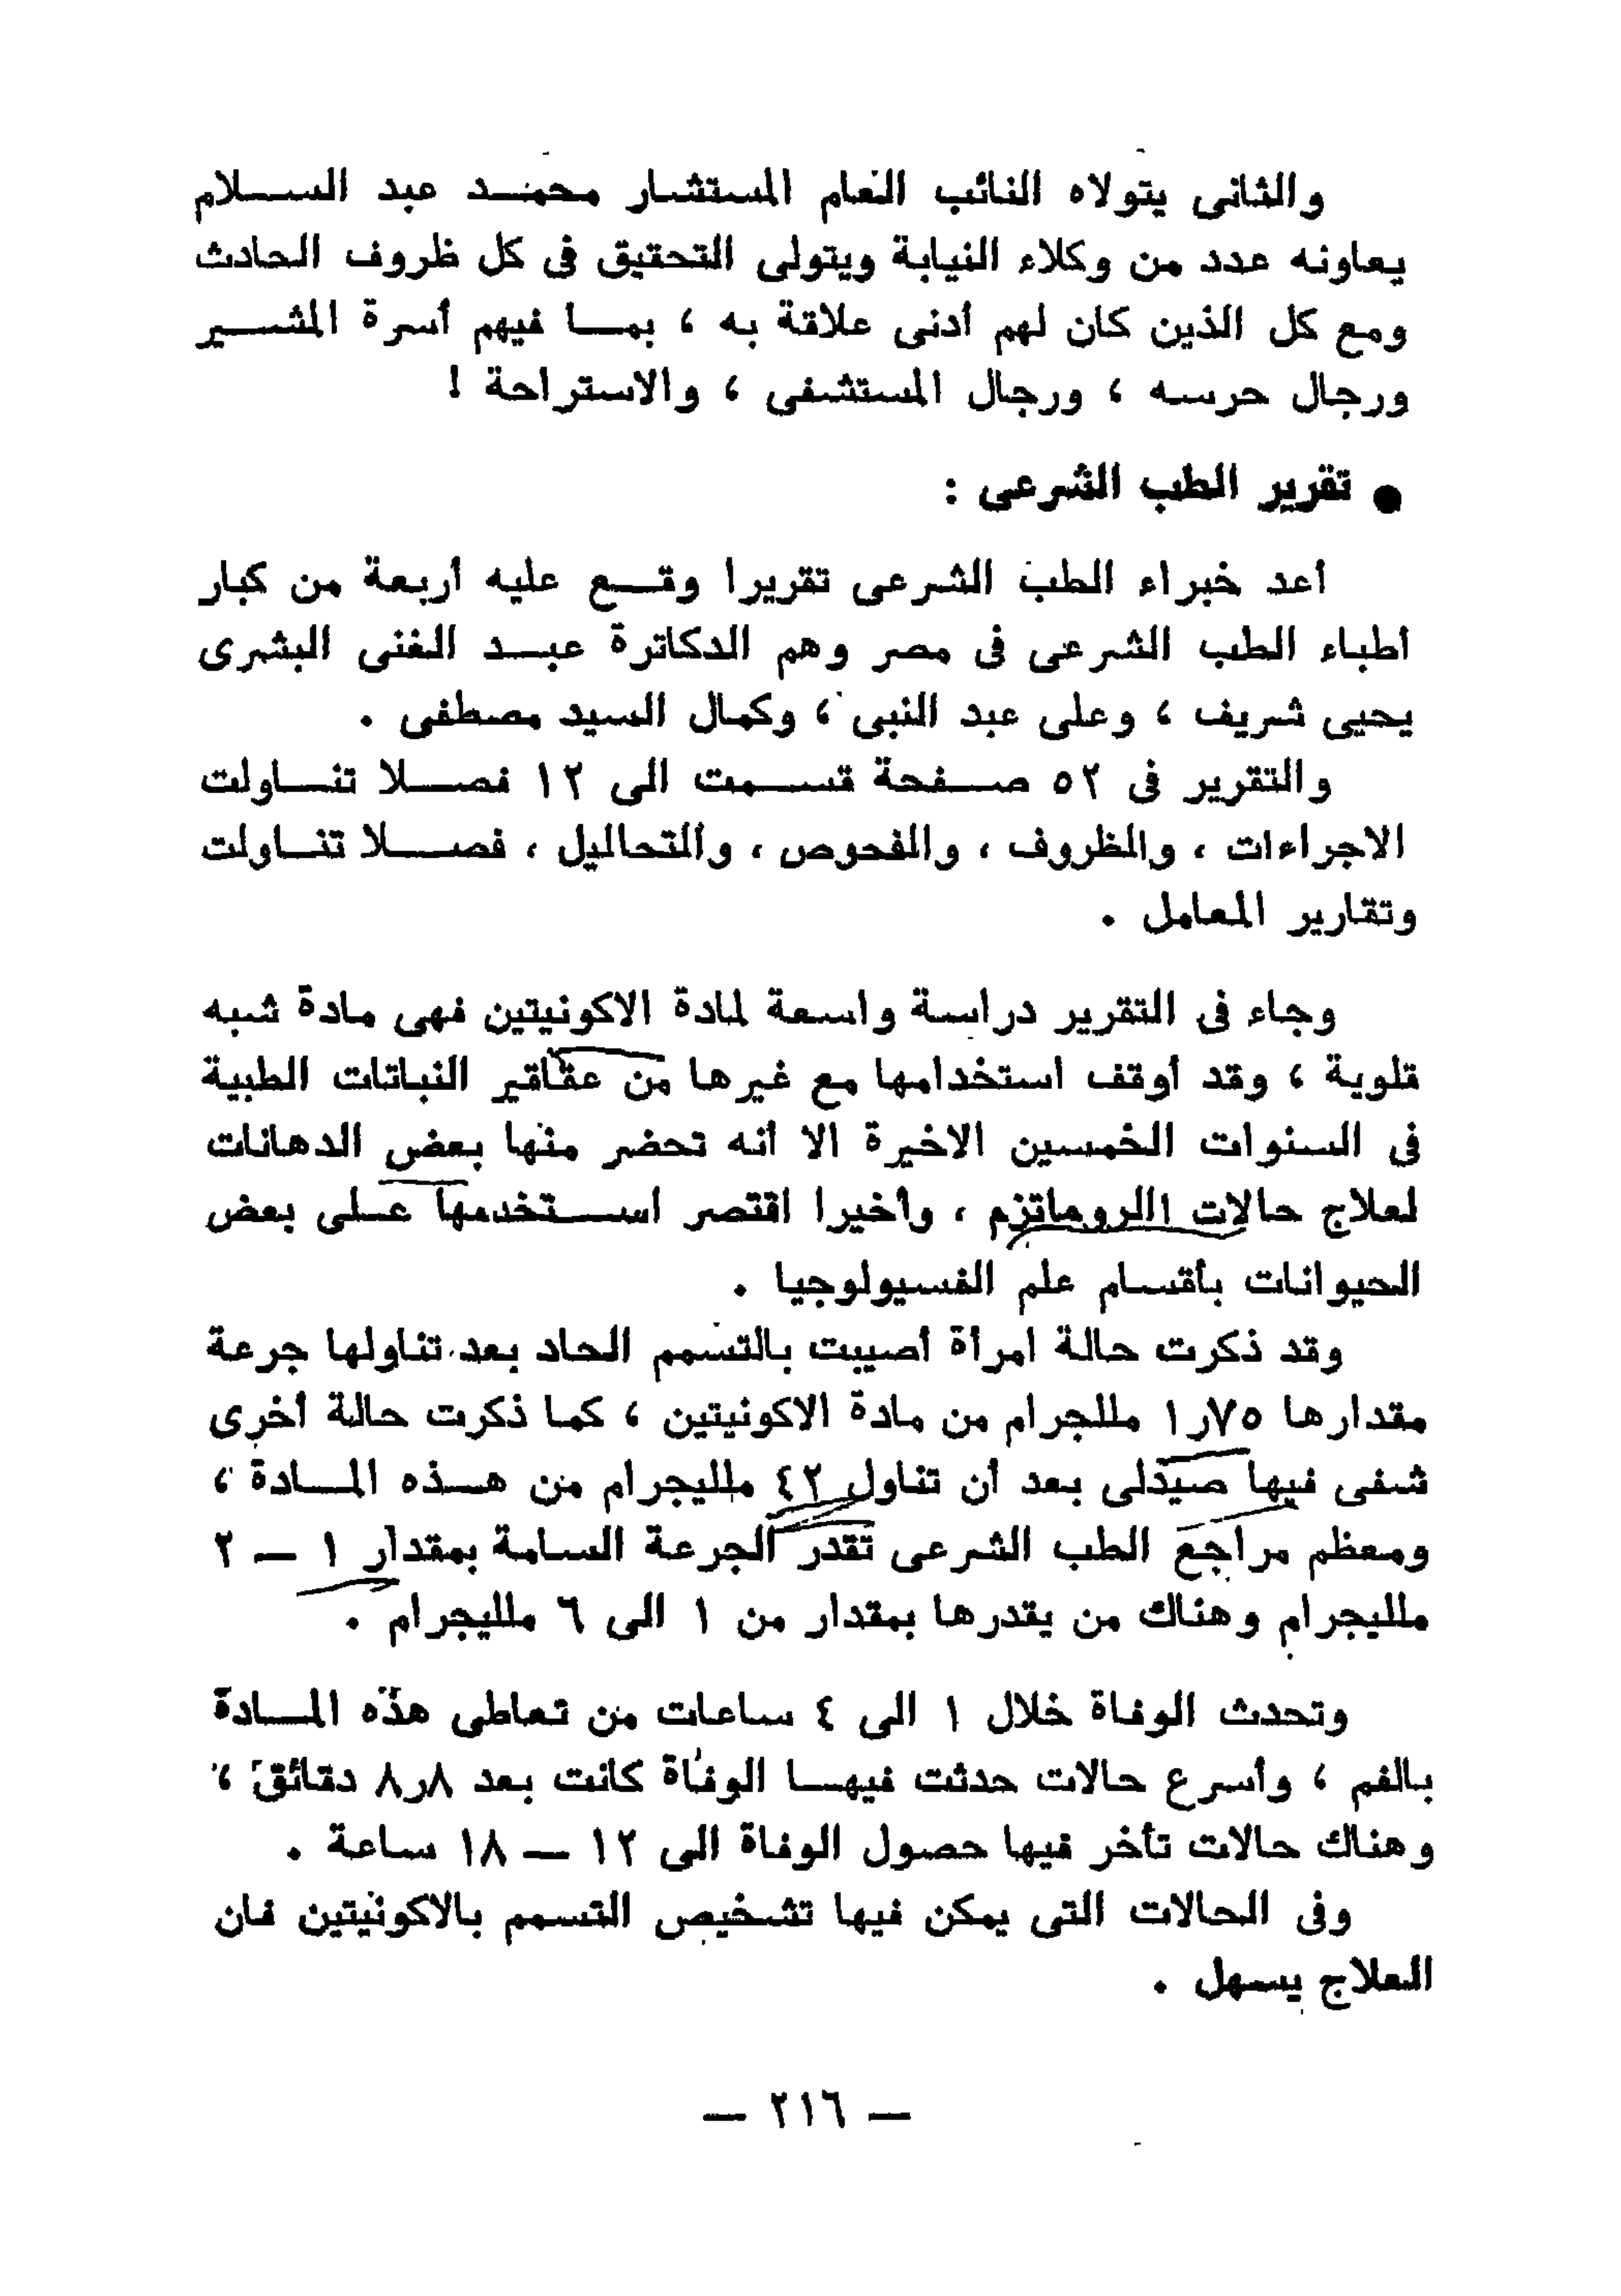 والثانى يتولاه النائب العام المستشار محمد عبد السلام
يعاونه عدد من وكلاء النيابة ويتولى التحقيق فى كل ظروف الحادث
ومع كل الذين كان لهم أدنى علاقة به ، بما فيهم أسرة المشير
ورجال حرسه ، ورجال المستشفى ، والاستراحة !
● تقرير الطب الشرعى :
أعد خبراء الطب الشرعى تقريرا وقع عليه أربعة من كبار
أطباء الطب الشرعى فى مصر وهم الدكاترة عبد الغنى البشرى
يحيى شريف ، وعلى عبد النبى ، وكمال السيد مصطفى .
والتقرير فى ٥٢ صفحة قسمت الى ١٢ فصلا تناولت
الاجراءات ، والظروف ، والفحوص ، والتحاليل ، فصلا تناولت
وتقارير المعامل .
وجاء فى التقرير دراسة واسعة لمادة الاكونيتين فهى مادة شبه
قلوية ، وقد أوقف استخدامها مع غيرها من عقاقير النباتات الطبية
فى السنوات الخمسين الاخيرة الا أنه تحضر منها بعض الدهانات
لعلاج حالات االروماتزم ، وأخيرا اقتصر استخدمها على بعض
الحيوانات بأقسام علم الفسيولوجيا .
وقد ذكرت حالة امرأة أصيبت بالتسمم الحاد بعد تناولها جرعة
مقدارها ٧٥ر١ مللجرام من مادة الاكونيتين ، كما ذكرت حالة أخرى
شفى فيها صيدلى بعد أن تناول ٤٢ ملليجرام من هذه المادة ،
ومعظم مراجع الطب الشرعى تقدر الجرعة السامة بمقدار ١ — ٢
ملليجرام وهناك من يقدرها بمقدار من ١ الى ٦ ملليجرام .
وتحدث الوفاة خلال ١ الى ٤ ساعات من تعاطى هذه المادة
بالفم ، وأسرع حالات حدثت فيها الوفاة كانت بعد ٨ر٨ دقائق ،
وهناك حالات تأخر فيها حصول الوفاة الى ١٢ — ١٨ ساعة .
وفى الحالات التى يمكن فيها تشخيص التسمم بالاكونيتين فان
العلاج يسهل .
— ٢١٦ —